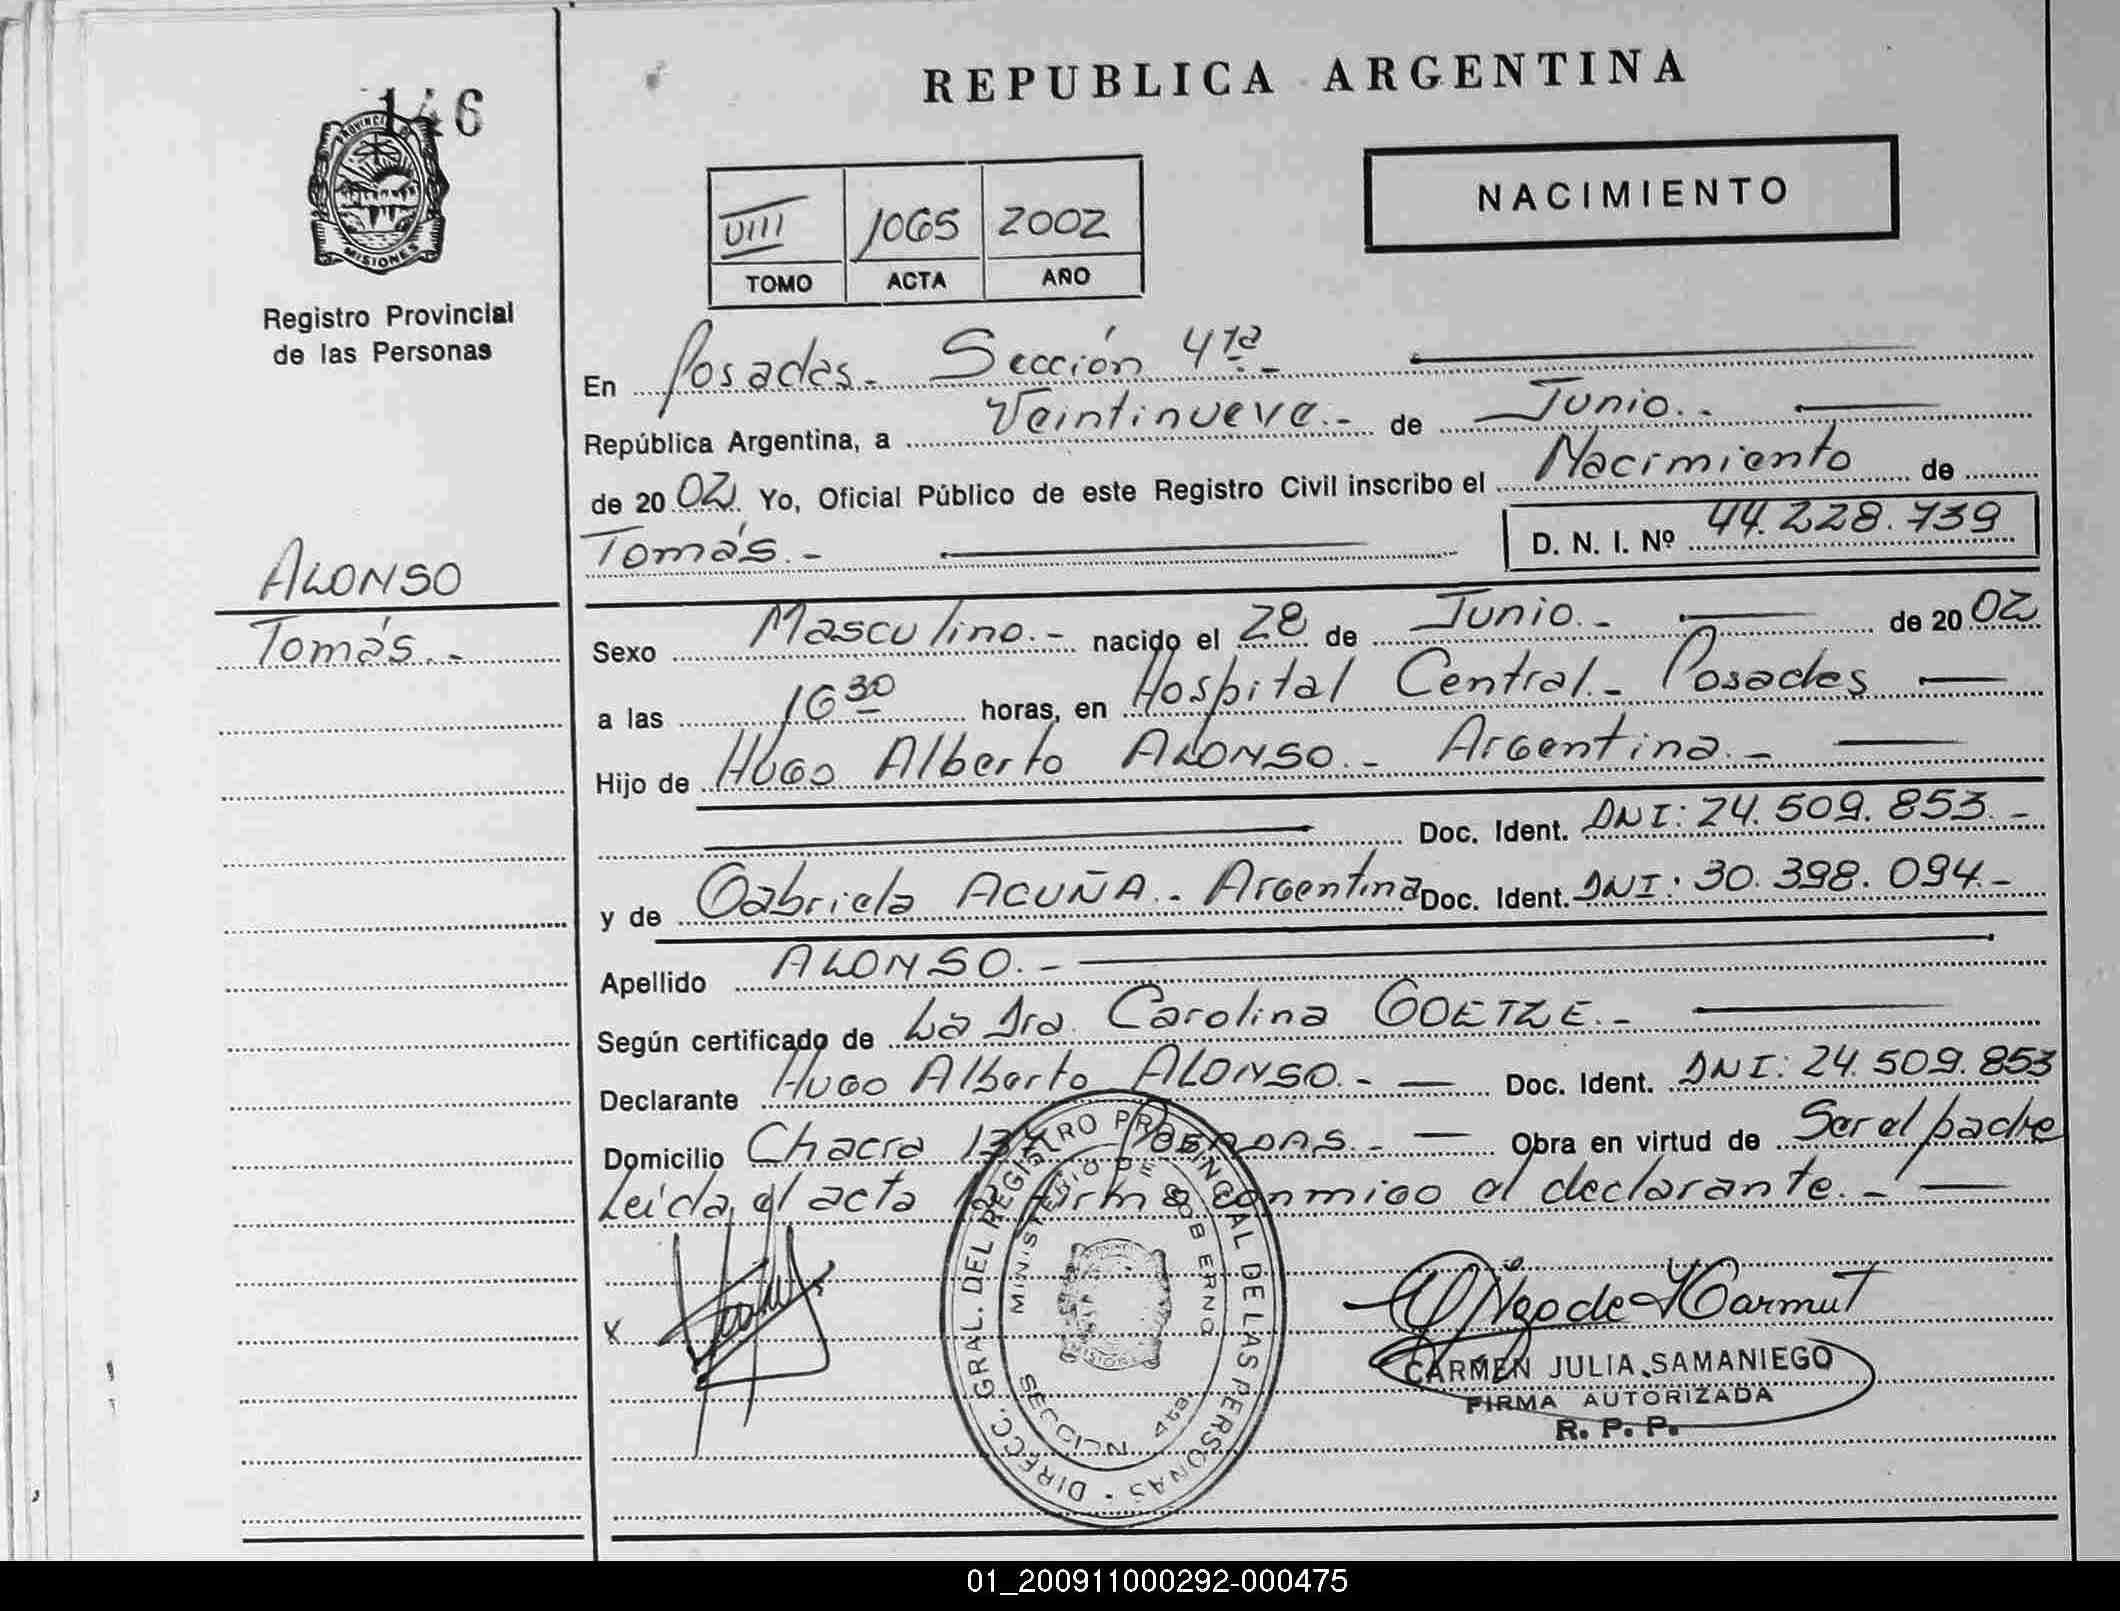 146
PROVINCIA DE
MISIONES
Registro Provincial
de las Personas
ALONSO
Tomás.-
REPUBLICA ARGENTINA
NACIMIENTO
VIII 1065 2002
TOMO ACTA AÑO
En Posadas.- Sección 4ta.-
República Argentina, a Veintinueve.- de Junio.-
de 2002. Yo, Oficial Público de este Registro Civil inscribo el Nacimiento de
Tomás.- D. N. I. Nº 44.228.739
Sexo Masculino.- nacido el 28 de Junio.- de 2002
a las 16 30 horas, en Hospital Central.- Posadas
Hijo de Hugo Alberto ALONSO.- Argentina.-
Doc. Ident. DNI: 24.509.853.-
y de Gabriela ACUÑA.- Argentina Doc. Ident. DNI: 30.398.094.-
Apellido ALONSO.-
Según certificado de La Dra. Carolina GOETZE.-
Declarante Hugo Alberto ALONSO.- Doc. Ident. DNI: 24.509.853
Domicilio Chacra POSADAS.- Obra en virtud de Ser el padre
Leída el acta la firma conmigo el declarante.-
X
DIRECC. GRAL. DEL REGISTRO PROVINCIAL DE LAS PERSONAS
MINISTERIO DE GOBIERNO
MISIONES
SECCION 4ta.
CARMEN JULIA SAMANIEGO
FIRMA AUTORIZADA
R. P. P.
01_200911000292-000475